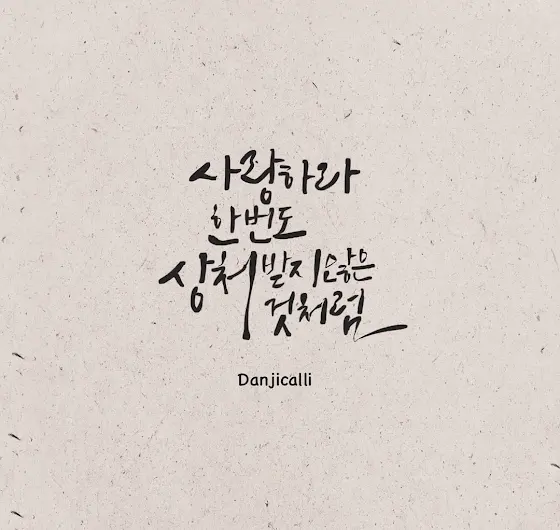 사랑하라
한번도
상처받지않은
것처럼
Danjicalli